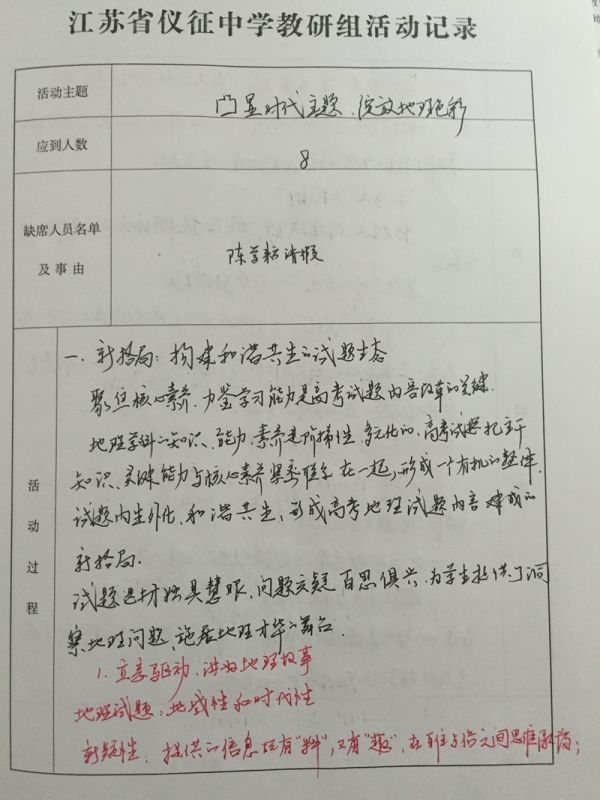 江苏省仪征中学教研组活动记录
活动主题
凸显时代主题,绽放地理色彩
应到人数
8
缺席人员名单
及事由
陈 请假
活动过程
一、新格局:构建和谐共生的试题生态
聚焦核心素养,力鉴学习能力是高考试题内容改革的关键.
地理学科的知识、能力、素养是阶梯性、多元化的,高考试题把主干
知识、关键能力与核心素养紧密联系在一起,形成一个有机的整体.
试题内生外化、和谐共生,形成高考地理试题内容 的
新格局.
试题选材独具慧眼,问题立疑百思俱兴,为学生提供了洞
察地理问题,施展地理才华的舞台.
1. 立意驱动,讲好地理故事
地理试题:地域性和时代性
新疑性:提供的信息既有"料",又有"趣",在 与 之间思维 ;